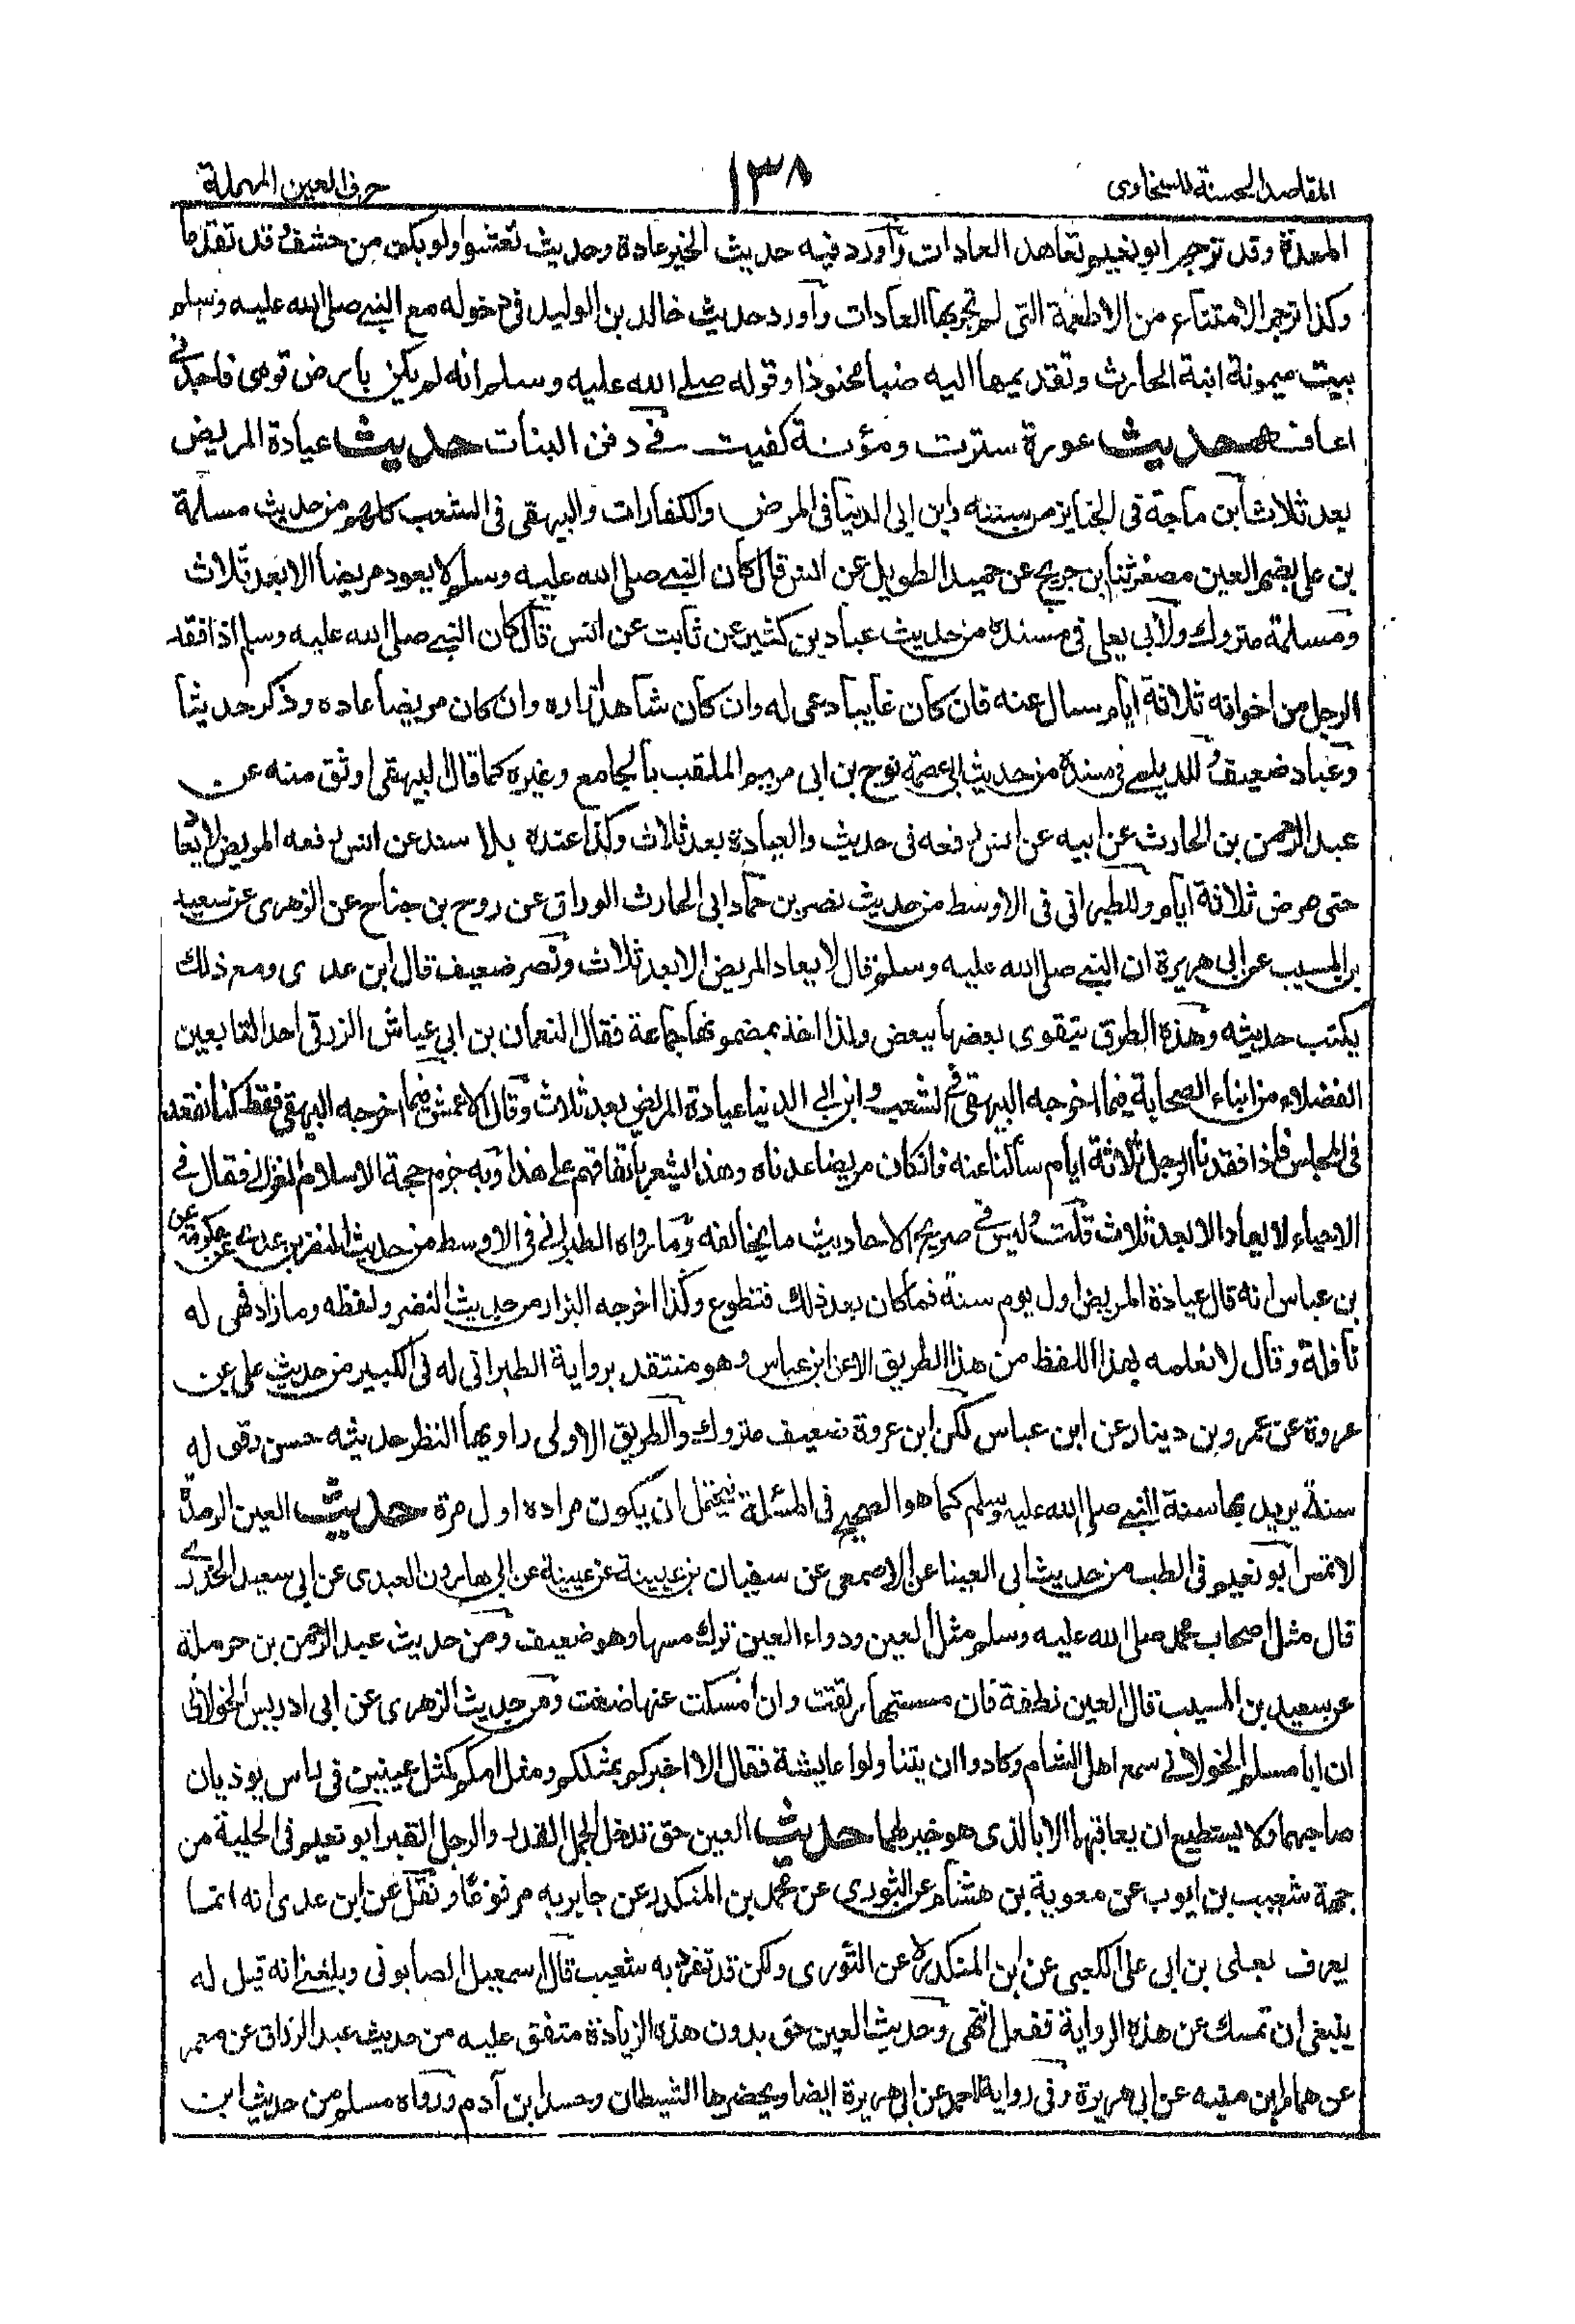 المقاصد الحسنة للسخاوى
١٣٨
حرف العين المهملة
المعدة وقد ترجم ابو نعيم تعاهد العادات وأورد فيه حديث الخير عادة وحديث تعشوا ولو بكف من حشف قد تقدما
وكذا ترجم الامتناع من الاطعمة التى لم تجر بها العادات وأورد حديث خالد بن الوليد فى دخوله مع النبى صلى الله عليه وسلم
بيت ميمونة ابنة الحارث وتقديمها اليه ضبا محنوذا وقوله صلے الله عليه وسلم انه لم يكن بارض قومى فاجدنے
اعافه حديث عورة سترت ومؤنة كفيت فے دفن البنات حديث عيادة المريض
بعد ثلاث ابن ماجة فى الجنايز من سننه وابن ابى الدنيا فى المرض والكفارات والبيهقى فى الشعب كلهم من حديث مسلمة
بن على بضم العين مصغر ثنا ابن جريج عن حميد الطويل عن انس قال كان النبے صلى الله عليه وسلم لا يعود مريضا الا بعد ثلاث
ومسلمة متروك ولأبى يعلى فى مسنده من حديث عباد بن كثير عن ثابت عن انس قال كان النبے صلى الله عليه وسلم اذا فقد
الرجل من اخوانه ثلاثة ايام سال عنه فان كان غايبا دعى له وان كان شاهدا زاره وان كان مريضا عاده وذكر حديثا
وعباد ضعيف وللديلمے فى مسنده من حديث ابى عصمة نوح بن ابى مريم الملقب بالجامع وغيره كما قال البيهقى اوثق منه عن
عبد الرحمن بن الحارث عن ابيه عن انس رفعه فى حديث والعيادة بعد ثلاث وكذا عنده بلا سند عن انس رفعه المريض لا يعاد
حتى مرض ثلاثة ايام وللطبرانى فى الاوسط من حديث نصر بن حماد ابى الحارث الوراق عن روح بن جناح عن الزهرى عن سعيد
بن المسيب عن ابى هريرة ان النبے صلى الله عليه وسلم قال لا يعاد المريض الا بعد ثلاث ونصر ضعيف قال ابن عدى ومع ذلك
يكتب حديثه وهذه الطرق يتقوى بعضها ببعض ولذا اخذ بمضمونها جماعة فقال النعمان بن ابى عياش الزرقى احد التابعين
الفضلاء من ابناء الصحابة فيما اخرجه البيهقى فى الشعب وابن ابى الدنيا عيادة المريض بعد ثلاث وقال الاعمش فيما اخرجه البيهقى فقط كنا نقعد
فى المجلس فاذا فقدنا الرجل ثلاثة ايام سألنا عنه فان كان مريضا عدناه وهذا يشعر باتفاقهم على هذا وبه جزم حجة الاسلام الغزالى فقال فے
الاحياء لا يعاد الا بعد ثلاث قلت وليس فى صريح الاحاديث ما يخالفه وما رواه الطبرانے فى الاوسط من حديث النضر بن عدى عن عكرمة عن
بن عباس انه قال عيادة المريض اول يوم سنة فما كان بعد ذلك فتطوع وكذا اخرجه البزار من حديث النضر ولفظه وما زاد فهى له
نافلة وقال لا نعلمه بهذا اللفظ من هذا الطريق الا عن ابن عباس وهو منتقد برواية الطبرانى له فى الكبير من حديث على عن
عروة عن عمرو بن دينار عن ابن عباس لكن ابن عروة ضعيف متروك والطريق الاولى راويها النظر حديثه حسن وقوله
سنة يريد بها سنة النبے صلى الله عليه وسلم كما هو الصحيح فى المسئلة فيحتمل ان يكون مراده اول مرة حديث العين الرمدة
لا تمس ابو نعيم فى الطب من حديث ابى العينا عن الاصمعى عن سفيان بن عيينة عن عيينة عن ابى هارون العبدى عن ابى سعيد الخدرے
قال مثل اصحاب محمد صلى الله عليه وسلم مثل العين ودواء العين ترك مسها وهو ضعيف ومن حديث عبد الرحمن بن حرملة
عن سعيد بن المسيب قال العين نطفة فان مسستها رنقت وان امسكت عنها صفت ومن حديث الزهرى عن ابى ادريس الخولانى
ان ابا مسلم الخولانے سمع اهل الشام وكادوا ان يتناولوا عايشة فقال الا اخبركم بمثلكم ومثل امكم كمثل عينين فى راس يوذيان
صاحبهما ولا يستطيع ان يعاقبهما الا بالذى هو خير لهما حديث العين حق تدخل الجمل القدر والرجل القبر ابو نعيم فى الحلية من
جهة شعيب بن ايوب عن معوية بن هشام عن الثورى عن محمد بن المنكدر عن جابر به مرفوعا ونقل عن ابن عدى انه انما
يعرف بعلى بن ابى على الكعبى عن ابن المنكدر لا عن الثورى ولكن قد تفرد به شعيب قال اسمعيل الصابونى وبلغنى انه قيل له
ينبغى ان تمسك عن هذه الرواية ففعل انتهى وحديث العين حق بدون هذه الزيادة متفق عليه من حديث عبد الرزاق عن معمر
عن همام ابن منبه عن ابى هريرة وفى رواية لاحمد عن ابى هريرة ايضا ويحضرها الشيطان وحسد ابن آدم ورواه مسلم من حديث ابن